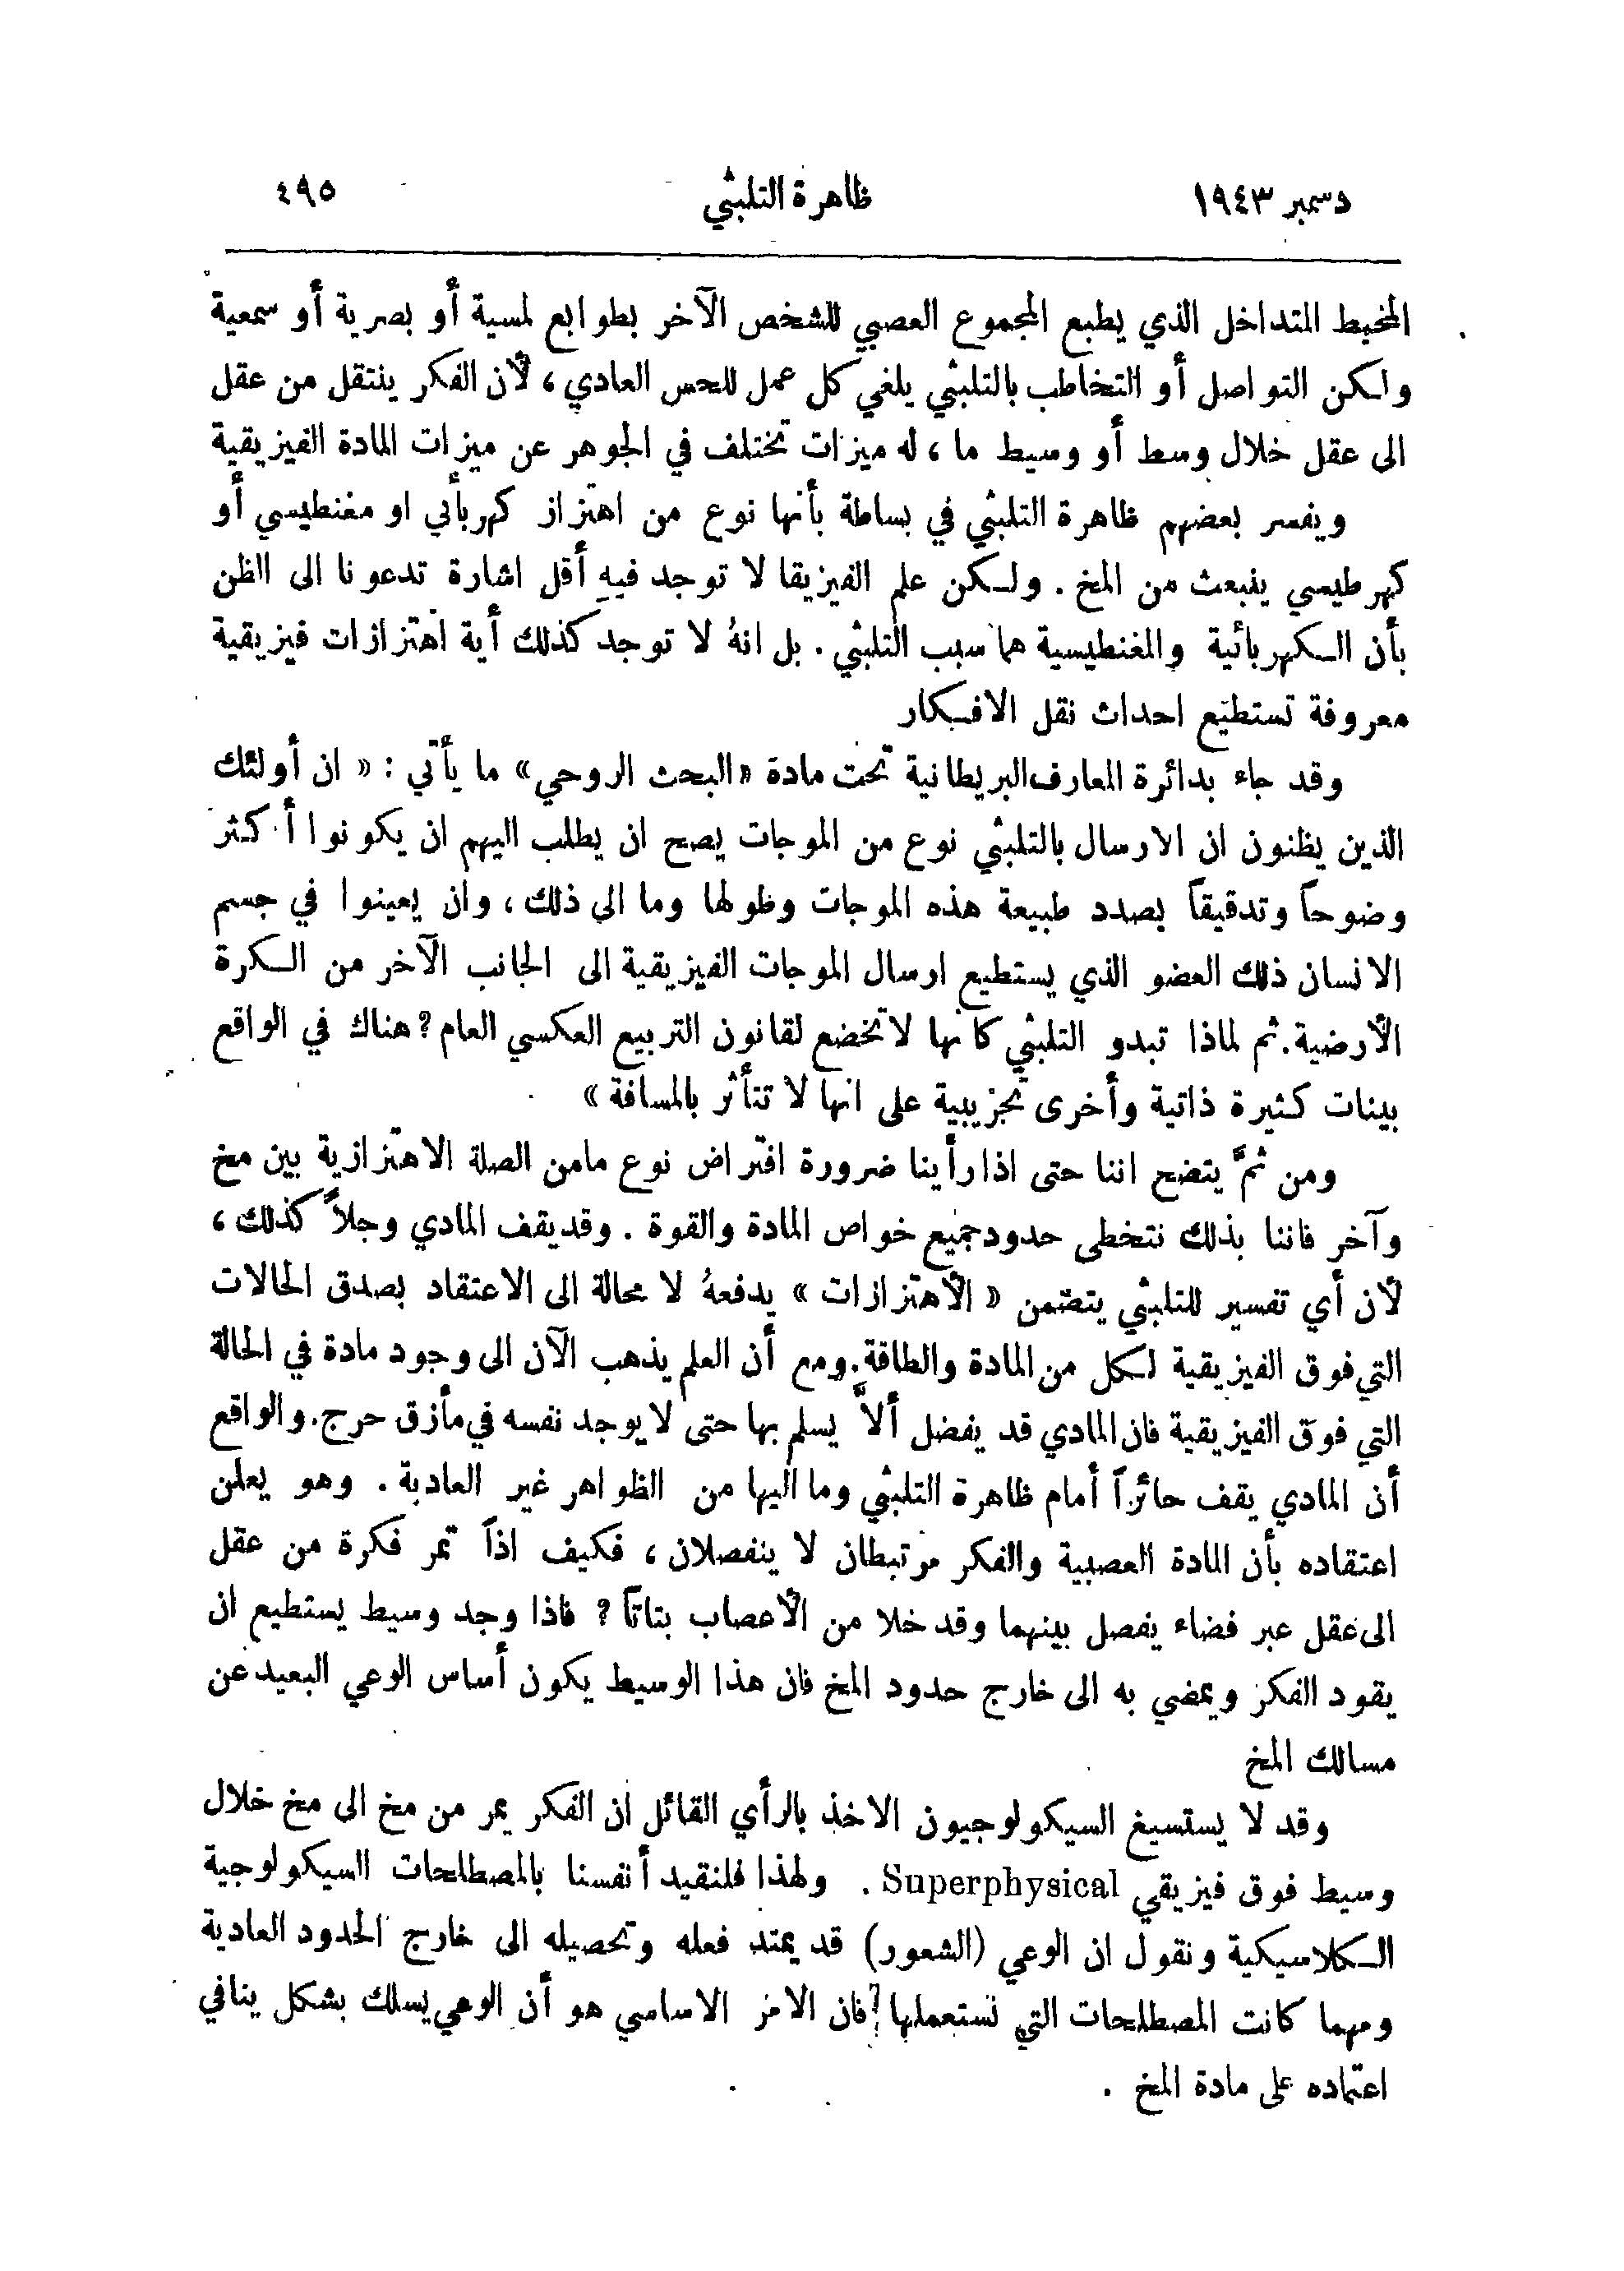 دسمبر ١٩٤٣
ظاهرة التلبثي
٤٩٥
المخيط المتداخل الذي يطبع المجموع العصبي للشخص الآخر بطوابع لمسية أو بصرية أو سمعية
ولكن التواصل أو التخاطب بالتلبثي يلغي كل عمل للحس العادي ، لأن الفكر ينتقل من عقل
الى عقل خلال وسط أو وسيط ما ، له ميزات تختلف في الجوهر عن ميزات المادة الفيزيقية
ويفسر بعضهم ظاهرة التلبثي في بساطة بأنها نوع من اهتزاز كهربأئي او مغنطيسي أو
كهرطيسي ينبعث من المخ . ولكن علم الفيزيقا لا توجد فيهِ أقل اشارة تدعونا الى الظن
بأن الكهربائية والمغنطيسية هما سبب التلبثي . بل انهُ لا توجد كذلك أية اهتزازات فيزيقية
معروفة تستطيع احداث نقل الافكار
وقد جاء بدائرة المعارف البريطانية تحت مادة «البحث الروحي» ما يأتي : « ان أولئك
الذين يظنون ان الارسال بالتلبثي نوع من الموجات يصح ان يطلب اليهم ان يكونوا أكثر
وضوحاً وتدقيقاً بصدد طبيعة هذه الموجات وطولها وما الى ذلك ، وان يعينوا في جسم
الانسان ذلك العضو الذي يستطيع ارسال الموجات الفيزيقية الى الجانب الآخر من الكرة
الأرضية . ثم لماذا تبدو التلبثي كأنها لا تخضع لقانون التربيع العكسي العام ؟ هناك في الواقع
بينات كثيرة ذاتية وأخرى تجزيبية على انها لا تتأثر بالمسافة »
ومن ثمَّ يتضح اننا حتى اذا رأينا ضرورة افتراض نوع مامن الصلة الاهتزازية بين مخ
وآخر فاننا بذلك نتخطى حدود جميع خواص المادة والقوة . وقد يقف المادي وجلاً كذلك ،
لأن أي تفسير للتلبثي يتضمن « الأهتزازات » يدفعهُ لا محالة الى الاعتقاد بصدق الحالات
التي فوق الفيزيقية لكل من المادة والطاقة . ومع أن العلم يذهب الآن الى وجود مادة في الحالة
التي فوق الفيزيقية فان المادي قد يفضل ألاَّ يسلم بها حتى لا يوجد نفسه في مأزق حرج . والواقع
أن المادي يقف حائراً أمام ظاهرة التلبثي وما اليها من الظواهر غير العادية . وهو يعلن
اعتقاده بأن المادة العصبية والفكر مرتبطان لا ينفصلان ، فكيف اذاً تمر فكرة من عقل
الى عقل عبر فضاء يفصل بينهما وقد خلا من الأعصاب بتاتاً ؟ فاذا وجد وسيط يستطيع ان
يقود الفكر ويمضي به الى خارج حدود المخ فان هذا الوسيط يكون أساس الوعي البعيد عن
مسالك المخ
وقد لا يستسيغ السيكولوجيون الاخذ بالرأي القائل ان الفكر يمر من مخ الى مخ خلال
وسيط فوق فيزيقي Superphysical . ولهذا فلنقيد أنفسنا بالمصطلحات السيكولوجية
الكلاسيكية ونقول ان الوعي (الشعور) قد يمتد فعله وتحصيله الى خارج الحدود العادية
ومهما كانت المصطلحات التي نستعملها فان الامر الاساسي هو أن الوعي يسلك بشكل ينافي
اعتماده على مادة المخ .